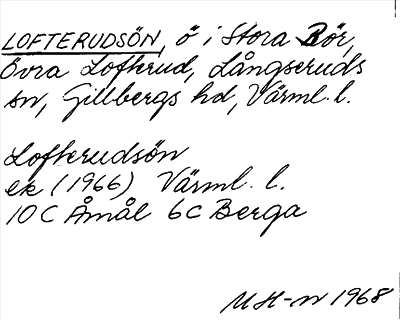 LOFTERUDSÖN, ö i Stora Bör,
Övra Lofterud, Långseruds
sn, Gillbergs hd, Värml. l.
Lofterudsön
ek (1966) Värml. l.
10 C Åmål 6c Berga
MH-n 1968